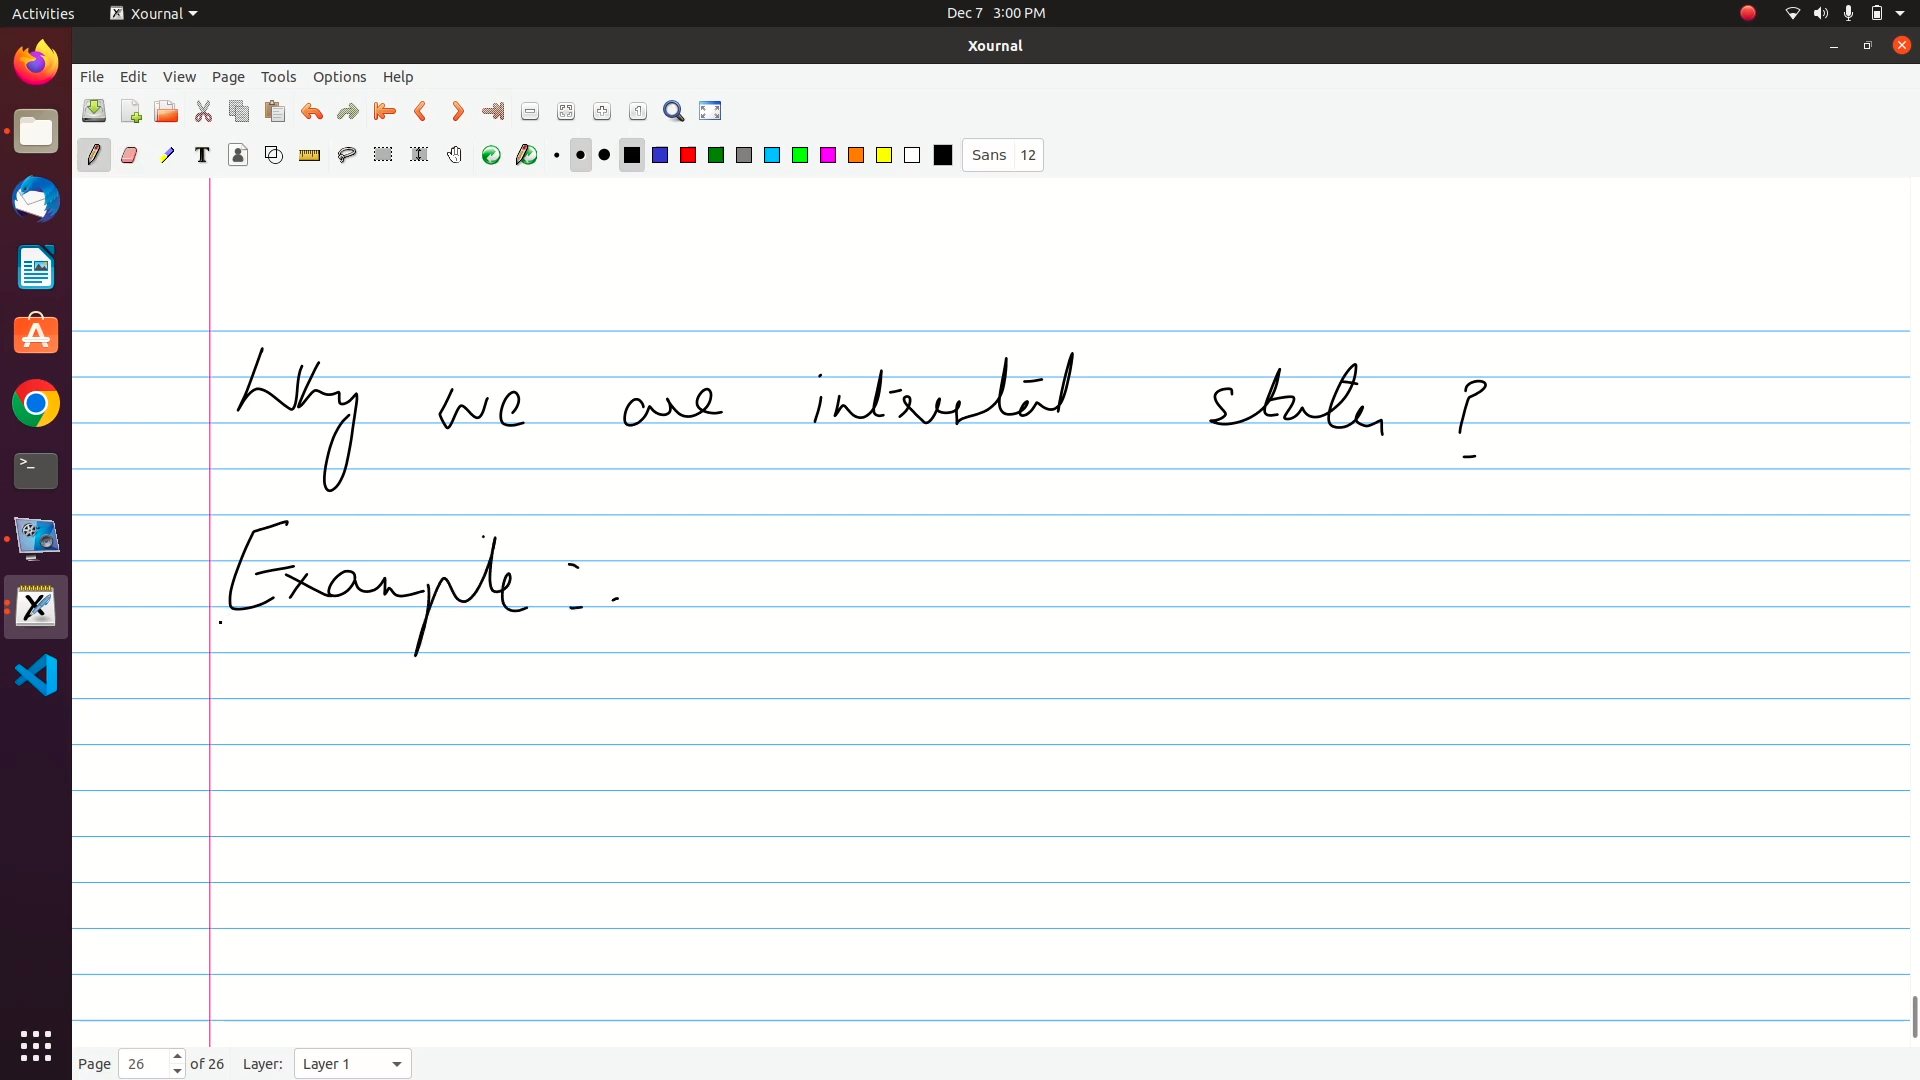 Activities Xournal Dec 7 3:00 PM
Xournal
File Edit View Page Tools Options Help
T Sans 12
Why we are interested states ?
Example :
Page 26 of 26 Layer: Layer 1